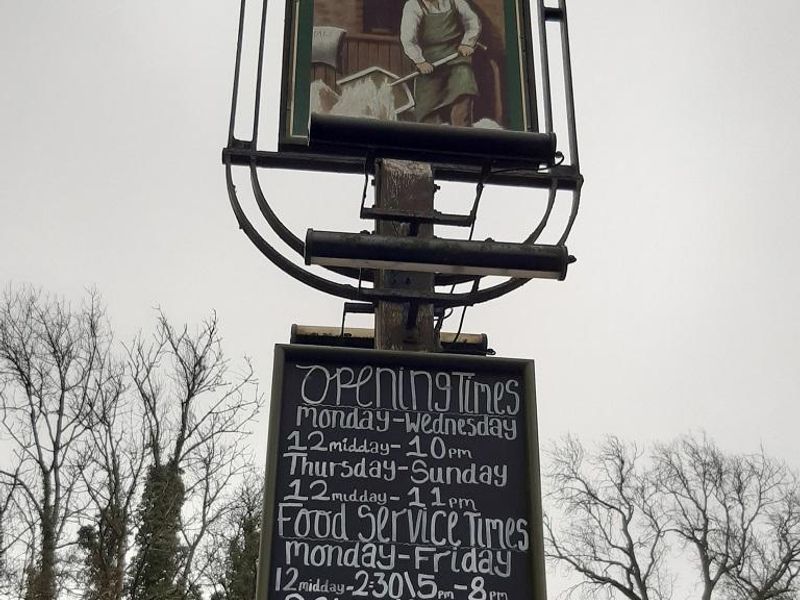 Opening Times
Monday-Wednesday
12 midday-10pm
Thursday-Sunday
12 midday-11pm
Food Service Times
Monday-Friday
12 midday-2:30\5pm-8pm